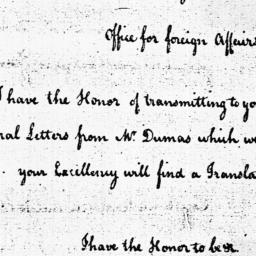 Office for foreign Affairs
I have the Honor of transmitting to yo
ral Letters from Mr. Dumas which we
. your Excellency will find a Transla
I have the Honor to be &